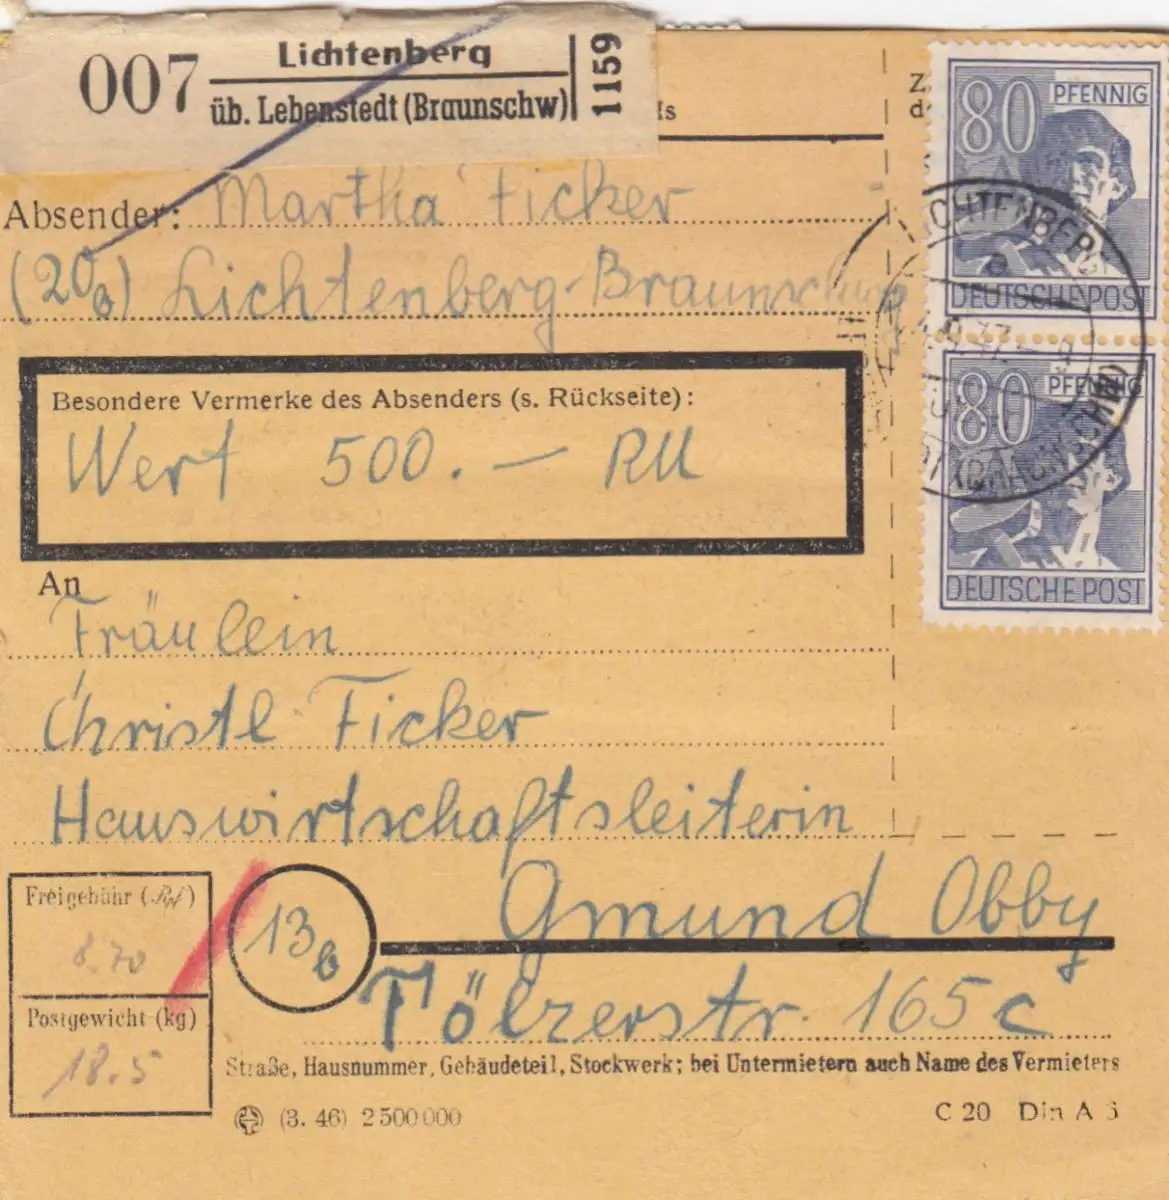 007
Lichtenberg
üb. Lebenstedt (Braunschw)
1159
80 PFENNIG
DEUTSCHE POST
80 PFENNIG
DEUTSCHE POST
LICHTENBERG
Absender: Martha Ficker
(20a) Lichtenberg-Braunschweig
Besondere Vermerke des Absenders (s. Rückseite):
Wert 500.— RM
An
Fräulein
Christl Ficker
Hauswirtschaftsleiterin
13b Gmund Obby
Tölzerstr. 165c
Straße, Hausnummer, Gebäudeteil, Stockwerk; bei Untermietern auch Name des Vermieters
Freigebühr (Rpf)
8.70
Postgewicht (kg)
18.5
(3. 46) 2 500 000
C 20 Din A 6